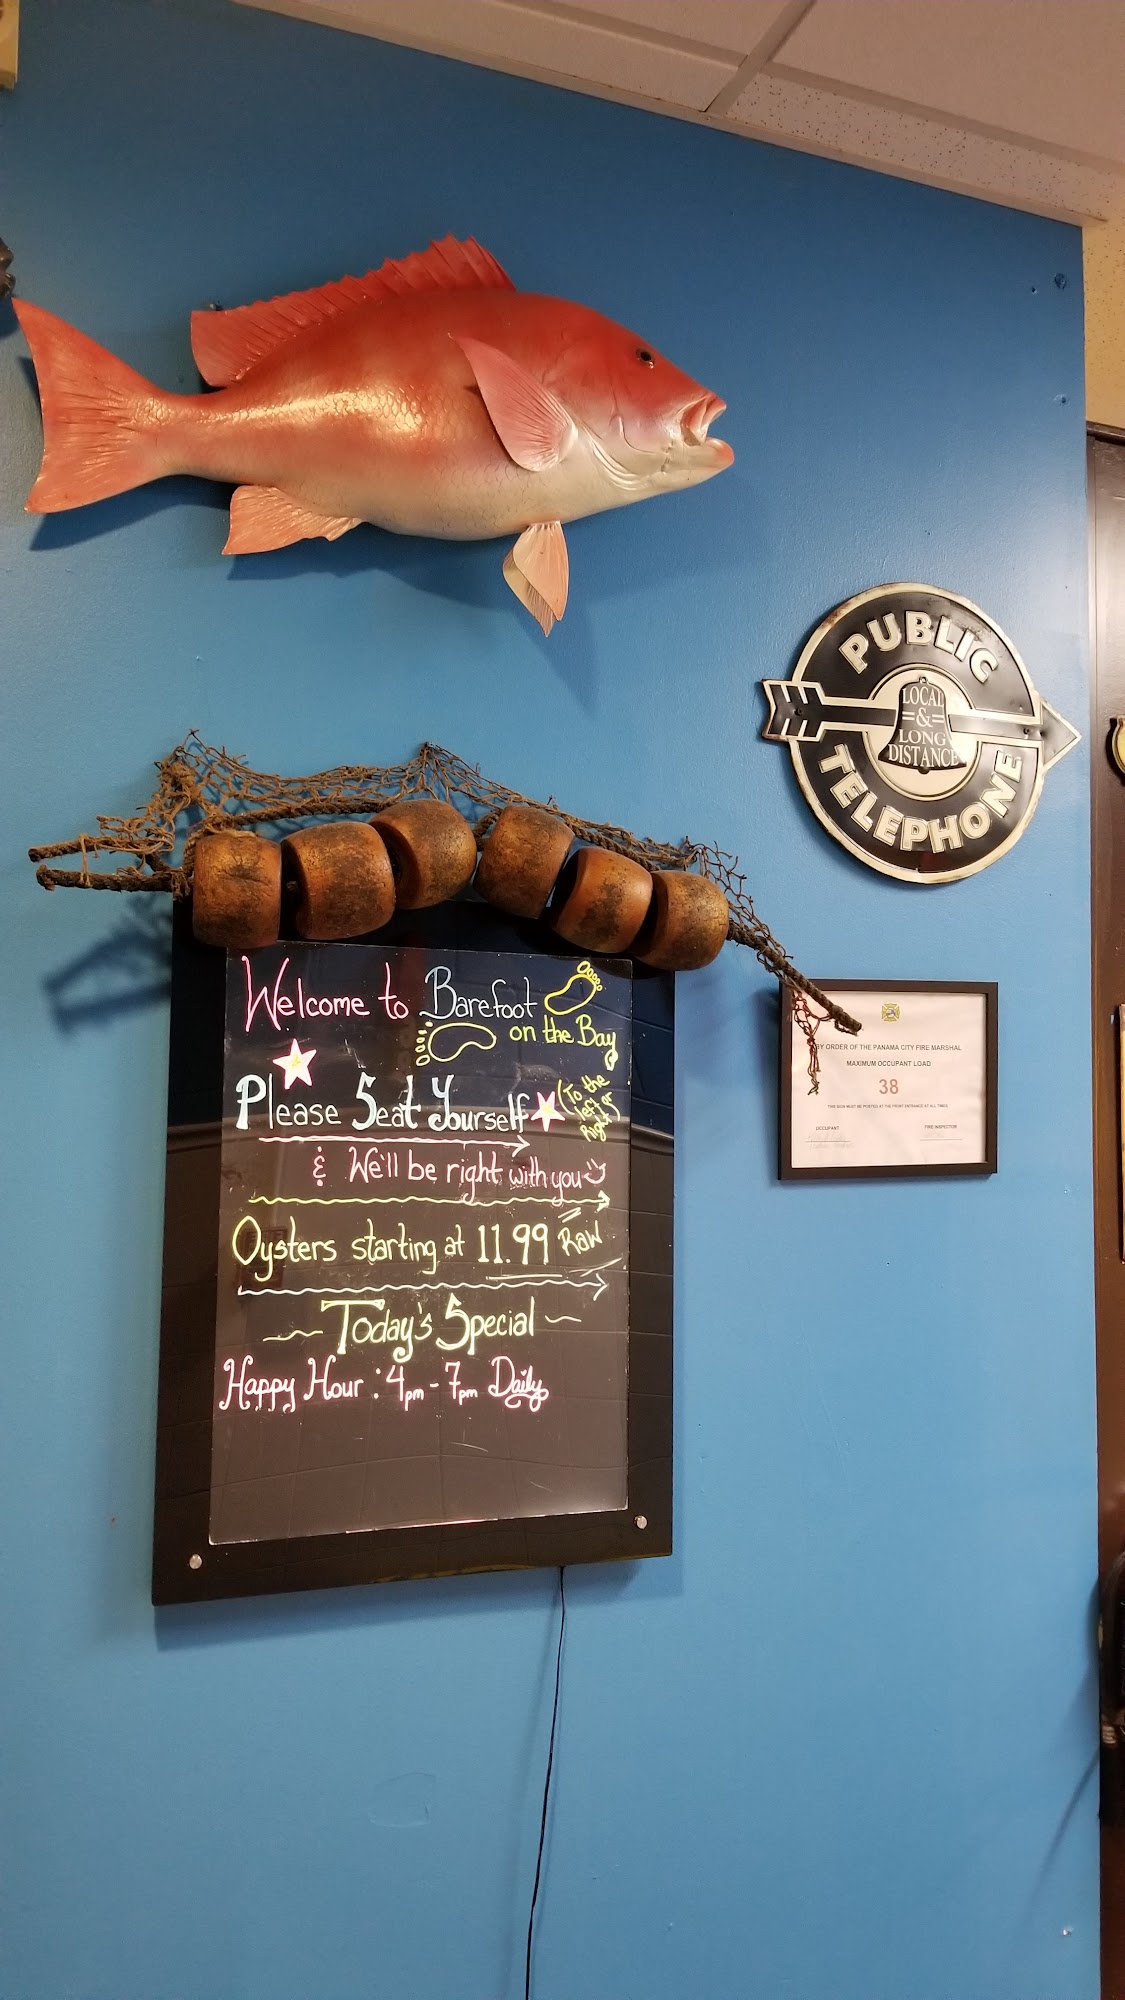 PUBLIC
LOCAL
&
LONG
DISTANCE
TELEPHONE
Welcome to Barefoot
on the Bay
Please Seat Yourself (To the left or Right)
& We'll be right with you
Oysters starting at 11.99 Raw
Today's Special
Happy Hour: 4pm - 7pm Daily
BY ORDER OF THE PANAMA CITY FIRE MARSHAL
MAXIMUM OCCUPANT LOAD
38
THIS SIGN MUST BE POSTED AT THE FRONT ENTRANCE AT ALL TIMES
OCCUPANT FIRE INSPECTOR